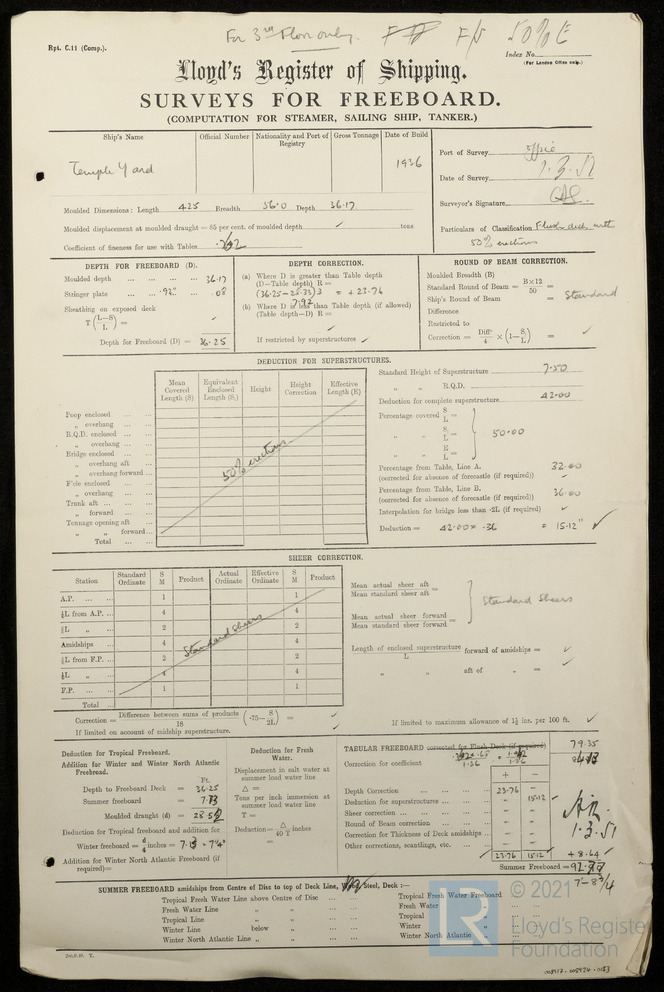 For 3rd Floor only.
Rpt. C.11 (Comp.).
50% E
Index No.
(For London Office only.)
Lloyd's Register of Shipping.
SURVEYS FOR FREEBOARD.
(COMPUTATION FOR STEAMER, SAILING SHIP, TANKER.)
Ship's Name Official Number Nationality and Port of Registry Gross Tonnage Date of Build
Temple Yard 1936
Port of Survey office
Date of Survey 1.3.51
Surveyor's Signature
Moulded Dimensions: Length 425 Breadth 56.0 Depth 36.17
Moulded displacement at moulded draught = 85 per cent. of moulded depth ✓ tons
Coefficient of fineness for use with Tables
Particulars of Classification Flush deck with
50% erections
DEPTH FOR FREEBOARD (D).
Moulded depth 36.17
Stringer plate .92" .08
Sheathing on exposed deck
T (L–S/L) = ✓
Depth for Freeboard (D) = 36.25
DEPTH CORRECTION.
(a) Where D is greater than Table depth
(D–Table depth) R =
(36.25–28.33)3 = + 23.76
7.92
(b) Where D is less than Table depth (if allowed)
(Table depth–D) R =
If restricted by superstructures ✓
ROUND OF BEAM CORRECTION.
Moulded Breadth (B)
Standard Round of Beam = B×12/50 =
Ship's Round of Beam =
Standard
Difference
Restricted to
Correction = Diff/4 × (1–S/L) = ✓
DEDUCTION FOR SUPERSTRUCTURES.
Mean Covered Length (S) Equivalent Enclosed Length (S₁) Height Height Correction Effective Length (E)
Poop enclosed
„ overhang
R.Q.D. enclosed
„ overhang
Bridge enclosed
„ overhang aft
„ overhang forward
F'cle enclosed
„ overhang
Trunk aft
„ forward
Tonnage opening aft
„ „ forward
Total
50% erections
Standard Height of Superstructure 7.50
„ „ R.Q.D.
Deduction for complete superstructure 42.00
Percentage covered S/L =
„ „ S₁/L =
„ „ E/L =
50.00
Percentage from Table, Line A. 32.00
(corrected for absence of forecastle (if required)) ✓
Percentage from Table, Line B. 36.00
(corrected for absence of forecastle (if required))
Interpolation for bridge less than ·2L (if required) ✓
Deduction = 42.00 × .36 = 15.12" ✓
SHEER CORRECTION.
Station Standard Ordinate S M Product Actual Ordinate Effective Ordinate S M Product
A.P. 1 1
⅙L from A.P. 4 4
⅓L „ 2 2
Amidships 4 4
⅓L from F.P. 2 2
⅙L „ 4 4
F.P. 1 1
Total
Standard Sheers
Mean actual sheer aft
Mean standard sheer aft =
Mean actual sheer forward
Mean standard sheer forward =
Standard Sheers
Length of enclosed superstructure/L forward of amidships = ✓
„ aft of „ = ✓
Correction = Difference between sums of products/18 (·75–S/2L) = ✓
If limited on account of midship superstructure. ✓
If limited to maximum allowance of 1½ ins. per 100 ft. ✓
Deduction for Tropical Freeboard.
Addition for Winter and Winter North Atlantic Freeboard.
Ft.
Depth to Freeboard Deck = 36.25
Summer freeboard =
Moulded draught (d) =
Deduction for Tropical freeboard and addition for
Winter freeboard = d/4 inches =
Addition for Winter North Atlantic Freeboard (if required) =
Deduction for Fresh Water.
Displacement in salt water at summer load water line
Δ =
Tons per inch immersion at summer load water line
T =
Deduction = Δ/40 T inches
=
TABULAR FREEBOARD corrected for Flush Deck (if required) 79.35
Correction for coefficient
1.36
+ –
Depth Correction 23.76 –
Deduction for superstructures – 15.12
Sheer correction – –
Round of Beam correction – –
Correction for Thickness of Deck amidships – –
Other corrections, scantlings, etc. – –
✓ 23.76 15.12 + 8.64 ✓
Summer Freeboard =
7'-8¾
1.3.51
SUMMER FREEBOARD amidships from Centre of Disc to top of Deck Line, Wood, Steel, Deck :—
Tropical Fresh Water Line above Centre of Disc
Fresh Water Line „ „
Tropical Line „ „
Winter Line below „
Winter North Atlantic Line „ „
Tropical Fresh Water Freeboard
Fresh Water „
Tropical „
Winter „
Winter North Atlantic „
© 2021
LR
Lloyd's Register
Foundation
008917-008924-0153